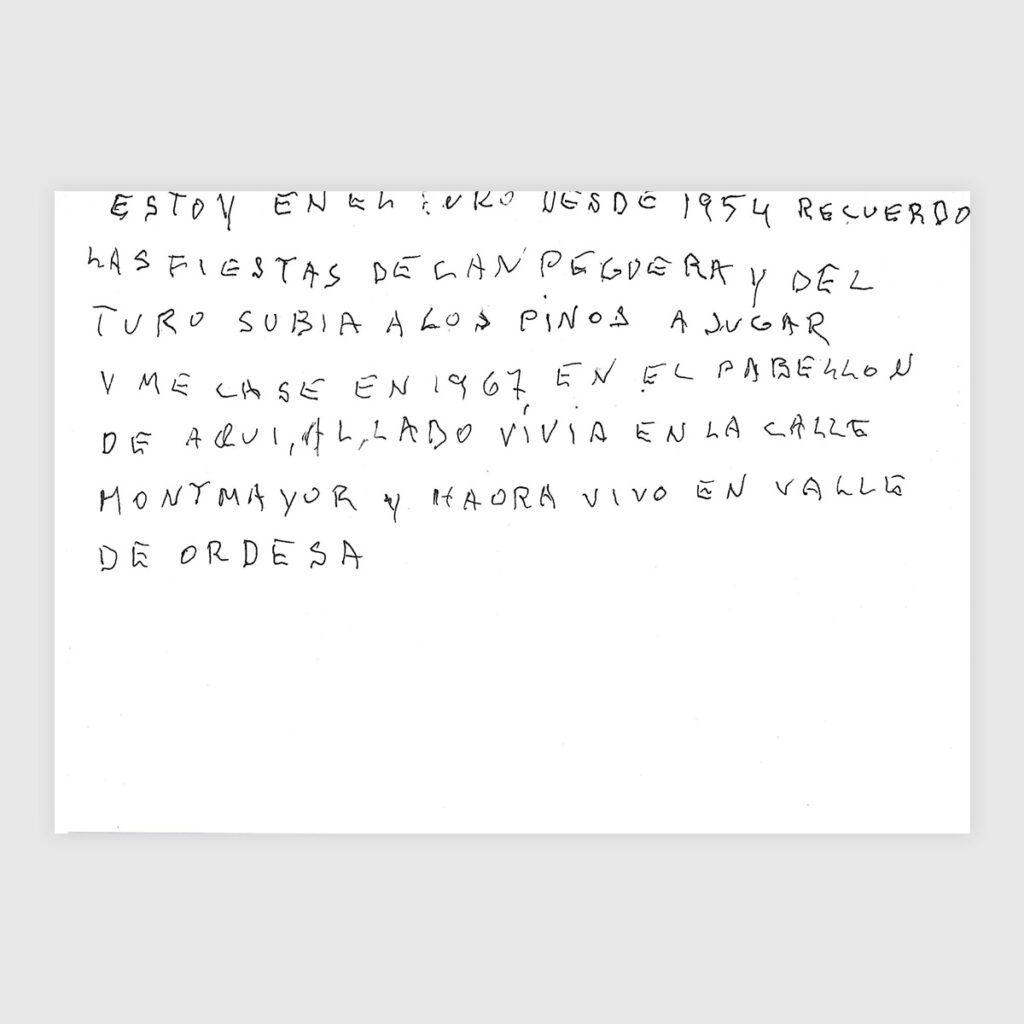 ESTOY EN EL TURO DESDE 1954 RECUERDO
LAS FIESTAS DE CAN PEGUERA Y DEL
TURO SUBIA A LOS PINOS A JUGAR
Y ME CASE EN 1967 EN EL PABELLON
DE AQUI, AL, LADO VIVIA EN LA CALLE
MONTMAYOR Y HAORA VIVO EN VALLE
DE ORDESA